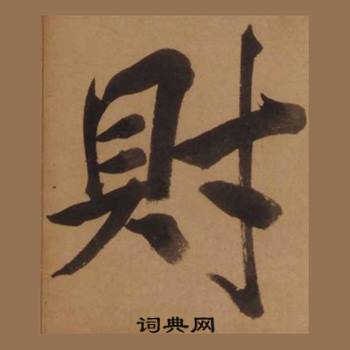 財
词典网